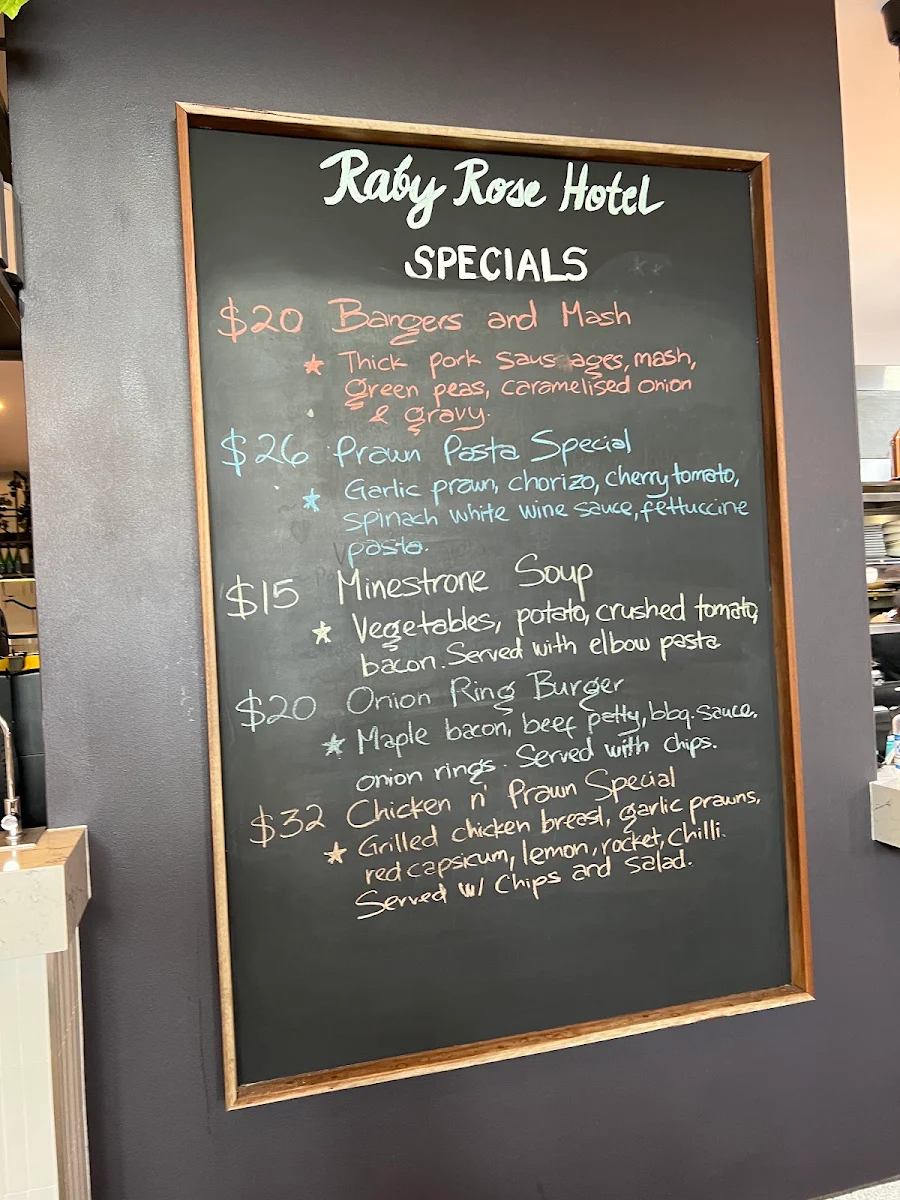 Raby Rose Hotel
SPECIALS
$20 Bangers and Mash
★ Thick pork sausages, mash,
green peas, caramelised onion
& gravy.
$26 Prawn Pasta Special
★ Garlic prawn, chorizo, cherry tomato,
spinach white wine sauce, fettuccine
pasta.
$15 Minestrone Soup
★ Vegetables, potato, crushed tomato,
bacon. Served with elbow pasta
$20 Onion Ring Burger
★ Maple bacon, beef patty, bbq. sauce.
onion rings. Served with chips.
$32 Chicken n' Prawn Special
★ Grilled chicken breast, garlic prawns,
red capsicum, lemon, rocket, chilli.
Served w/ Chips and Salad.